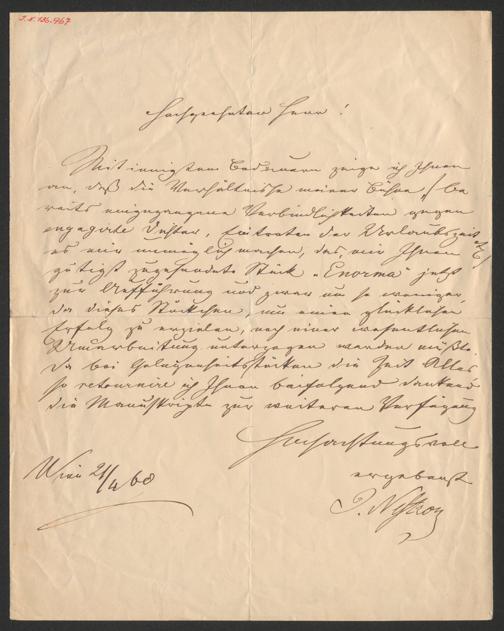 I.N. 136.967
Hochgeehrter Herr!
Mit innigstem Bedauern zeige ich Ihnen
an, daß die Verhältnisse meiner Bühne, (be
reits eingegangene Verbindlichkeiten gegen
engagirte Gäste, Eintreten der Urlaubszeit etc)
es mir unmöglich machen, das, mir Ihnen
gütigst zugesendete Stück "Enorma" jetzt
zur Aufführung und zwar um so weniger,
da dieses Stückchen, um einen glücklichen
Erfolg zu erzielen, noch einer wesentlichen
Umarbeitung unterzogen werden müßte.
Da bei Gelegenheitsstücken die Zeit Alles
so retournire ich Ihnen beifolgend dankend
die Manuskripte zur weiteren Verfügung
Hochachtungsvoll
ergebenst
Wien 21/4 60
J. Nestroy